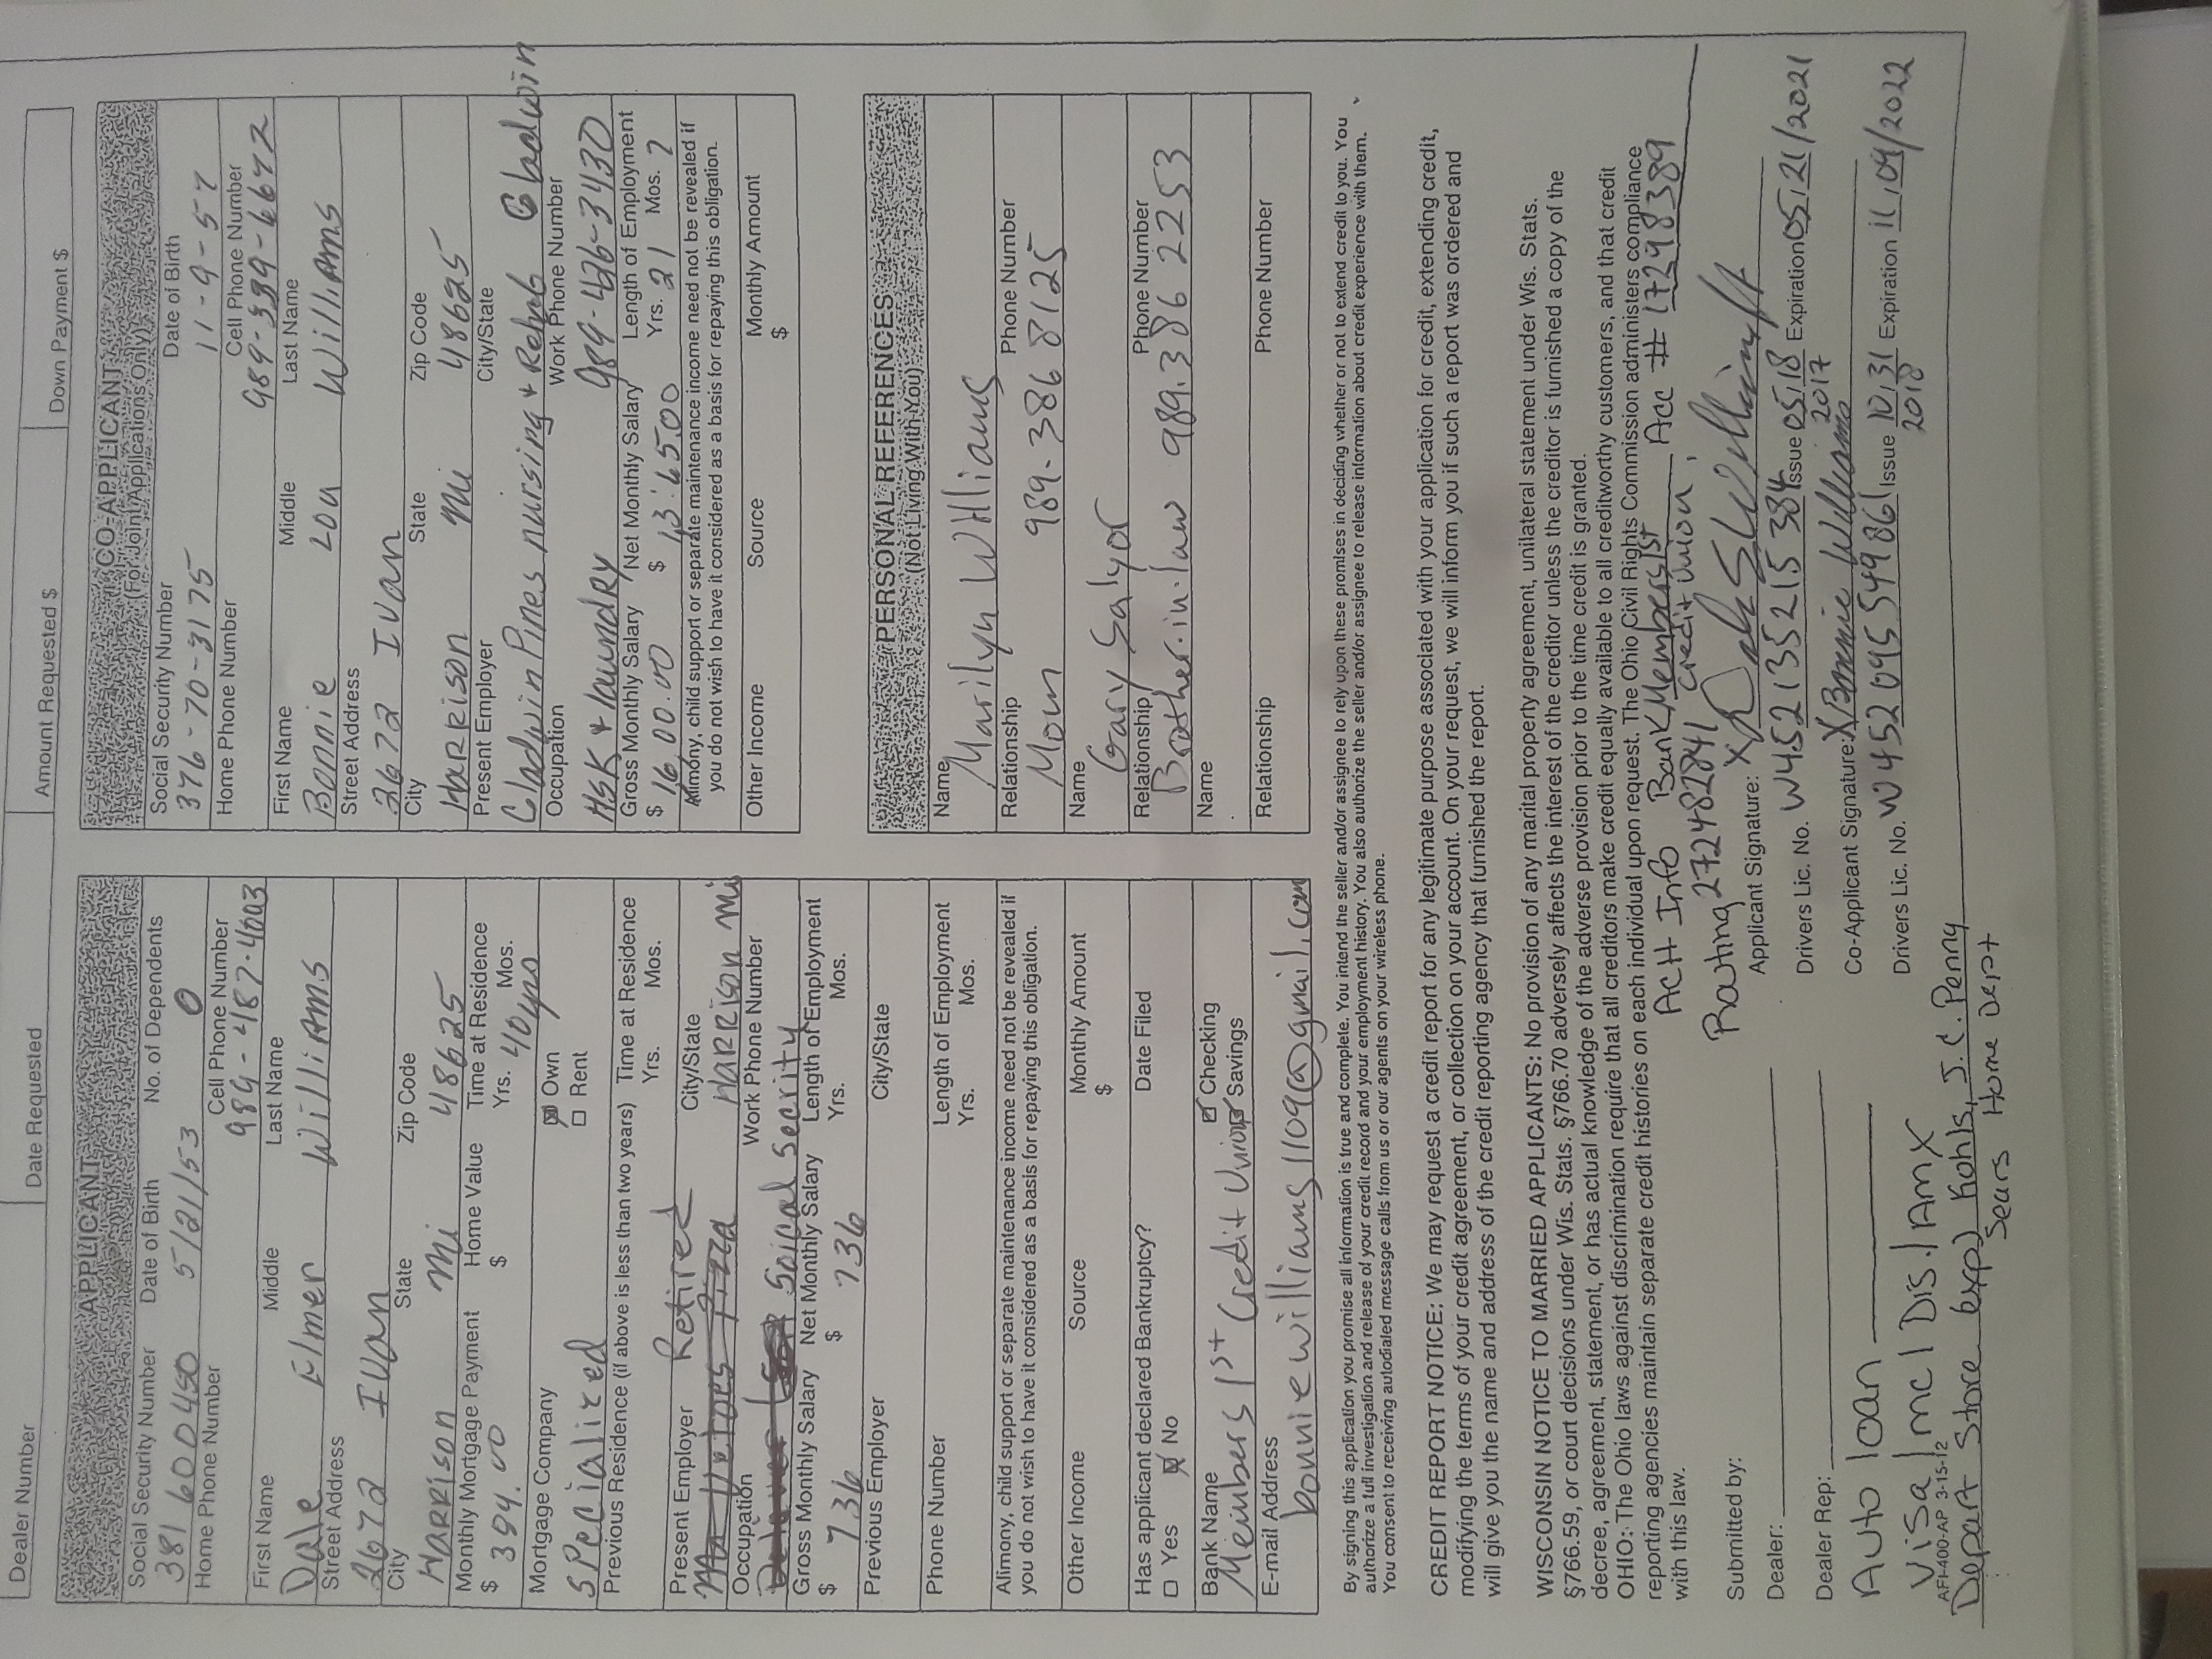 Dealer Number Date Requested Amount Requested $ Down Payment $
APPLICANT
Social Security Number Date of Birth No. of Dependents
381 60 0450 5/21/53 0
Home Phone Number Cell Phone Number
989-487-4003
First Name Middle Last Name
Dale Elmer Williams
Street Address
2672 Ivan
City State Zip Code
Harrison Mi 48625
Monthly Mortgage Payment Home Value Time at Residence
$ 394.00 $ Yrs. 40 yrs Mos.
Mortgage Company
☒ Own
☐ Rent
Specialized
Previous Residence (if above is less than two years) Time at Residence
Yrs. Mos.
Present Employer Retired City/State
Harrison mi
Occupation Work Phone Number
Soical Secrity
Gross Monthly Salary Net Monthly Salary Length of Employment
$ 736 $ 736 Yrs. Mos.
Previous Employer City/State
Phone Number Length of Employment
Yrs. Mos.
Alimony, child support or separate maintenance income need not be revealed if
you do not wish to have it considered as a basis for repaying this obligation.
Other Income Source Monthly Amount
$
Has applicant declared Bankruptcy? Date Filed
☐ Yes ☒ No
Bank Name ☑ Checking
Members 1st Credit Union ☑ Savings
E-mail Address
bonniewilliams1109@gmail.com
CO-APPLICANT
(For Joint Applications Only)
Social Security Number Date of Birth
376-70-3175 11-9-57
Home Phone Number Cell Phone Number
989-339-6672
First Name Middle Last Name
Bonnie Lou Williams
Street Address
2672 Ivan
City State Zip Code
Harrison Mi 48625
Present Employer City/State
Gladwin Pines nursing + Rehab Gladwin
Occupation Work Phone Number
HSK + laundry 989-426-3430
Gross Monthly Salary Net Monthly Salary Length of Employment
$ 16,00.00 $ Yrs. 21 Mos. 7
Alimony, child support or separate maintenance income need not be revealed if
you do not wish to have it considered as a basis for repaying this obligation.
Other Income Source Monthly Amount
$
PERSONAL REFERENCES
(Not Living With You)
Name
Marilyn Williams
Relationship Phone Number
Mom 989-386 8125
Name
Gary Salyor
Relationship Phone Number
Brother-in-law 989.386 2253
Name
Relationship Phone Number
By signing this application you promise all information is true and complete. You intend the seller and/or assignee to rely upon these promises in deciding whether or not to extend credit to you. You
authorize a full investigation and release of your credit record and your employment history. You also authorize the seller and/or assignee to release information about credit experience with them.
You consent to receiving autodialed message calls from us or our agents on your wireless phone.
CREDIT REPORT NOTICE: We may request a credit report for any legitimate purpose associated with your application for credit, extending credit,
modifying the terms of your credit agreement, or collection on your account. On your request, we will inform you if such a report was ordered and
will give you the name and address of the credit reporting agency that furnished the report.
WISCONSIN NOTICE TO MARRIED APPLICANTS: No provision of any marital property agreement, unilateral statement under Wis. Stats.
§766.59, or court decisions under Wis. Stats. §766.70 adversely affects the interest of the creditor unless the creditor is furnished a copy of the
decree, agreement, statement, or has actual knowledge of the adverse provision prior to the time credit is granted.
OHIO: The Ohio laws against discrimination require that all creditors make credit equally available to all creditworthy customers, and that credit
reporting agencies maintain separate credit histories on each individual upon request. The Ohio Civil Rights Commission administers compliance
with this law.
ACH Info Bank Members 1st Acc # 17298389
Credit Union
Routing 272482841
Submitted by:
Applicant Signature: X
Dealer:
Drivers Lic. No. W452135215384 Issue 05,18 2017 Expiration 05,21/2021
Dealer Rep:
Co-Applicant Signature: X Bonnie Williams
Drivers Lic. No. W452095549861 Issue 10,31 2018 Expiration 11,09/2022
Auto loan
Visa/mc/Dis./Amx
AFI-400-AP 3-15-12
Depart Store (exp) Kohls, J.C. Penny
Sears Home Depot